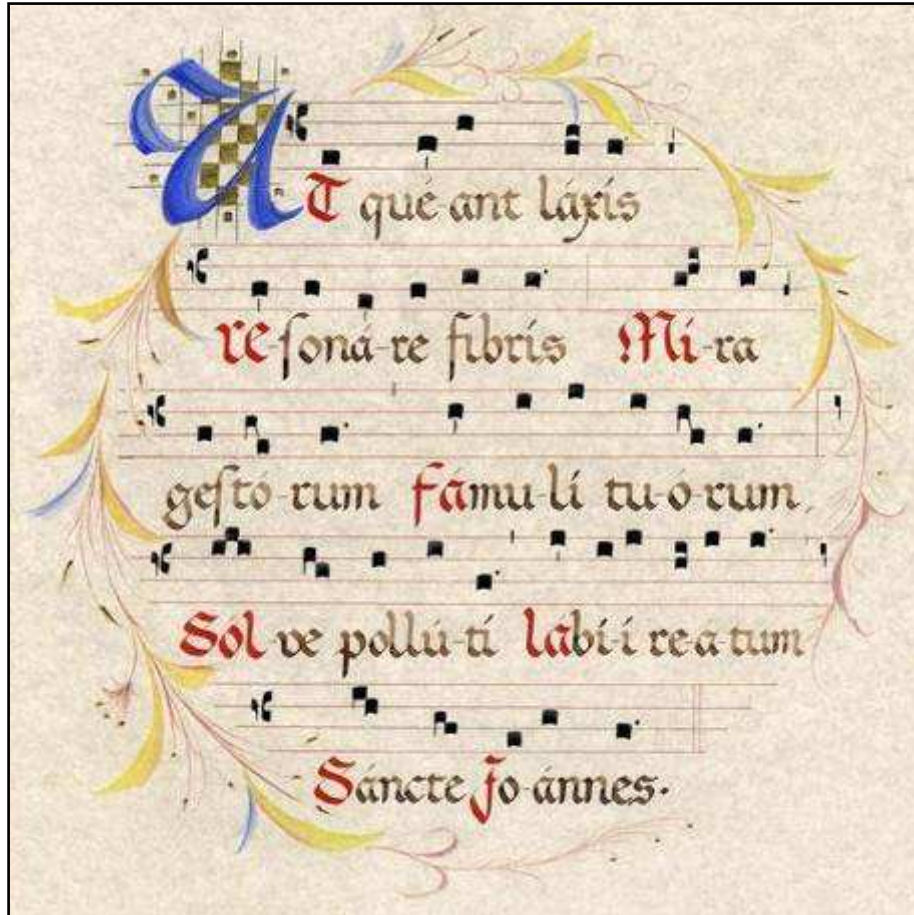 UT qué ant láxís
re-ſoná-re fibrís Mi-ra
geſtó-rum fámu-lí tu-ó-rum,
Sol ve pollú-tí labí-i re-a-tum
Sáncte Jo-ánnes.